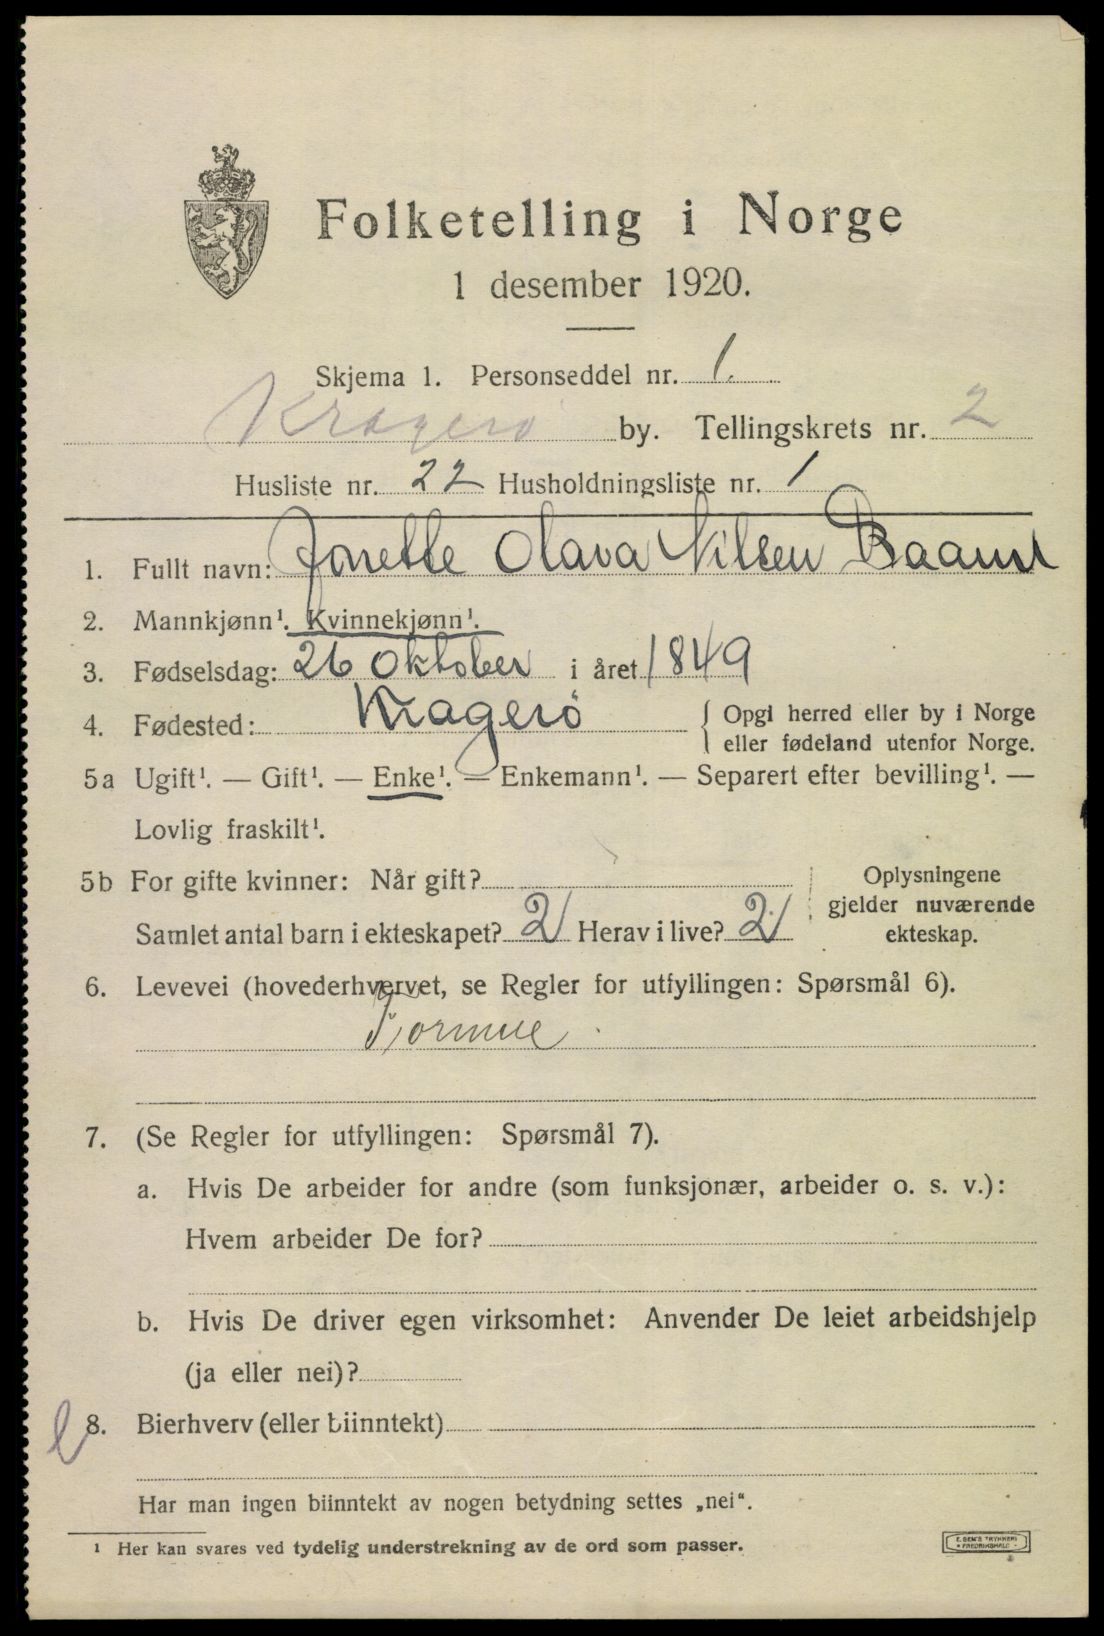 Folketelling i Norge
1 desember 1920.
Skjema 1. Personseddel nr. 1.
Kragerø by. Tellingskrets nr. 2
Husliste nr. 22 Husholdningsliste nr. 1
1. Fullt navn: Jonette Olava Nilsen
2. Mannkjønn¹. Kvinnekjønn¹.
3. Fødselsdag: 26 Oktober i året 1849
4. Fødested: Kragerö { Opgi herred eller by i Norge
eller fødeland utenfor Norge.
5a Ugift¹. — Gift¹. — Enke¹. — Enkemann¹. — Separert efter bevilling¹. —
Lovlig fraskilt¹.
5b For gifte kvinner: Når gift?
Samlet antal barn i ekteskapet? 2 Herav i live? 2
Oplysningene
gjelder nuværende
ekteskap.
6. Levevei (hovederhvervet, se Regler for utfyllingen: Spørsmål 6).
Formue.
7. (Se Regler for utfyllingen: Spørsmål 7).
a. Hvis De arbeider for andre (som funksjonær, arbeider o. s. v.):
Hvem arbeider De for?
b. Hvis De driver egen virksomhet: Anvender De leiet arbeidshjelp
(ja eller nei)?
8. Bierhverv (eller biinntekt)
Har man ingen biinntekt av nogen betydning settes „nei“.
¹ Her kan svares ved tydelig understrekning av de ord som passer.
E. SEM'S TRYKKERI
FREDRIKSHALD